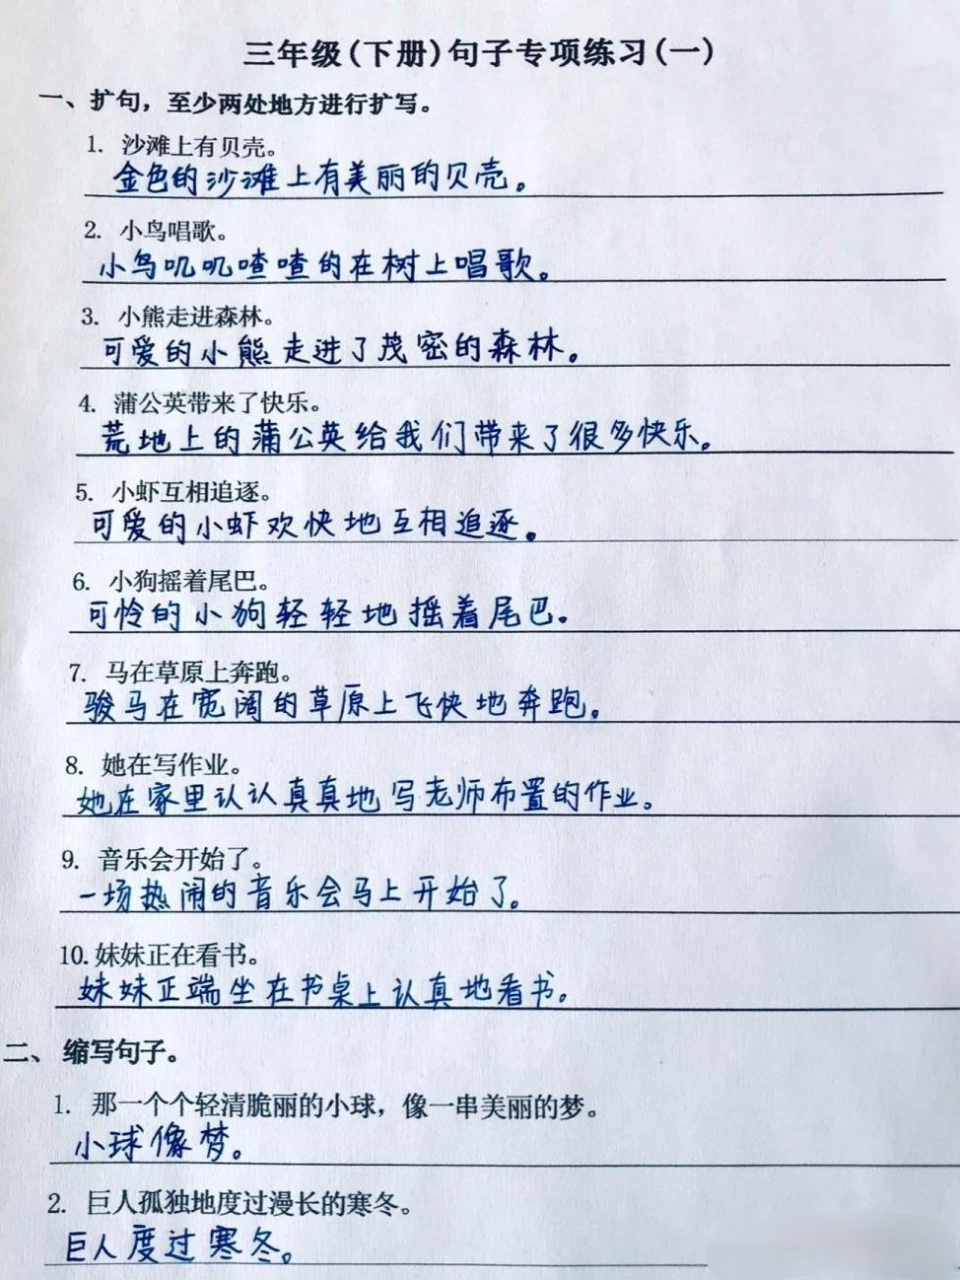 三年级(下册)句子专项练习(一)
一、扩句，至少两处地方进行扩写。
1. 沙滩上有贝壳。
金色的沙滩上有美丽的贝壳。
2. 小鸟唱歌。
小鸟叽叽喳喳的在树上唱歌。
3. 小熊走进森林。
可爱的小熊走进了茂密的森林。
4. 蒲公英带来了快乐。
荒地上的蒲公英给我们带来了很多快乐。
5. 小虾互相追逐。
可爱的小虾欢快地互相追逐。
6. 小狗摇着尾巴。
可怜的小狗轻轻地摇着尾巴。
7. 马在草原上奔跑。
骏马在宽阔的草原上飞快地奔跑。
8. 她在写作业。
她在家里认认真真地写老师布置的作业。
9. 音乐会开始了。
一场热闹的音乐会马上开始了。
10. 妹妹正在看书。
妹妹正端坐在书桌上认真地看书。
二、缩写句子。
1. 那一个个轻清脆丽的小球，像一串美丽的梦。
小球像梦。
2. 巨人孤独地度过漫长的寒冬。
巨人度过寒冬。